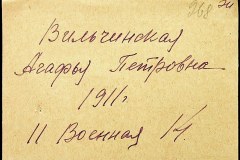 268
Вильчинская
Агафья Петровна
1911г
II Военная